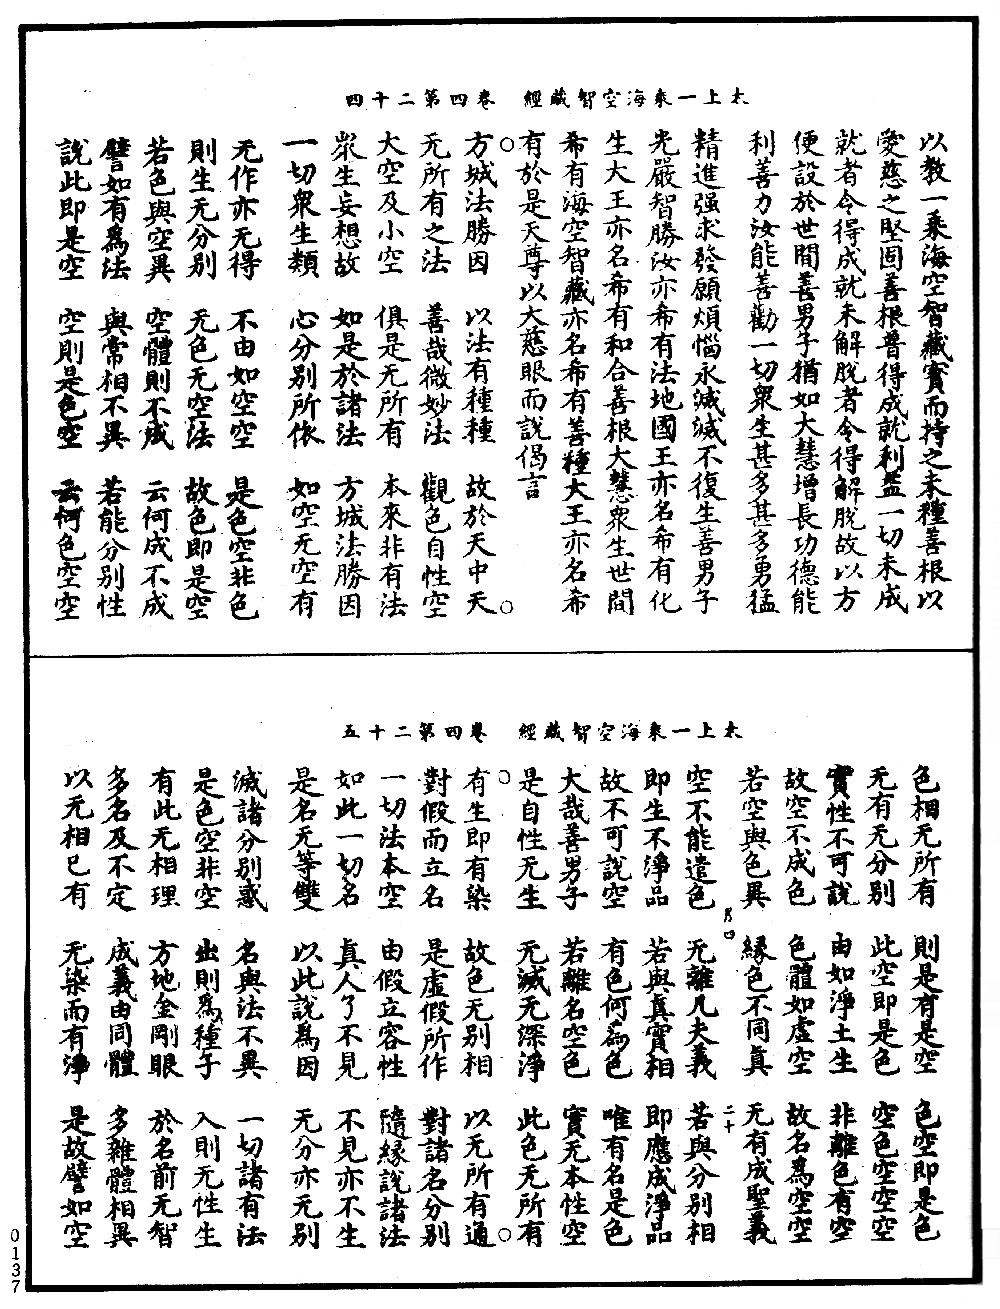 太上一乗海空智藏經　卷四第二十四
以教一乘海空智藏寳而持之未種善根以
愛慈之堅固善根普得成就利益一切未成
就者令得成就未解脫者令得解脫故以方
便設於世間善男子猶如大慧增長功德能
利善力汝能善勸一切衆生甚多甚多勇猛
精進强求發願煩惱永滅滅不復生善男子
光嚴智勝汝亦希有法地國王亦名希有化
生大王亦名希有和合善根大慧衆生世間
希有海空智藏亦名希有善種大王亦名希
有於是天尊以大慈眼而說偈言
方城法勝因　以法有種種　故於天中天
无所有之法　善哉微妙法　觀色自性空
大空及小空　俱是无所有　本來非有法
衆生妄想故　如是於諸法　方城法勝因
一切衆生類　心分別所依　如空无空有
无作亦无得　不由如空空　是色空非色
則生无分別　无色无空法　故色即是空
若色與空異　空體則不成　云何成不成
譬如有爲法　與常相不異　若能分別性
說此即是空　空則是色空　云何色空空
太上一乗海空智藏經　卷四第二十五
色相无所有　則是有是空　色空即是色
无有无分別　此空即是色　空色空空空
實性不可說　由如淨土生　非離色有空
故空不成色　色體如虚空　故名爲空空
若空與色異　縁色不同真　无有成聖義
月四　二十
空不能遣色　无離凡夫義　若與分別相
即生不淨品　若與真實相　即應成淨品
故不可說空　有色何爲色　唯有名是色
大哉善男子　若離名空色　實无本性空
是自性无生　无滅无深淨　此色无所有
有生即有染　故色无別相　以无所有通
對假而立名　是虚假所作　對諸名分別
一切法本空　由假立容性　隨縁說諸法
如此一切名　真人了不見　不見亦不生
是名无等雙　以此說爲因　无分亦无別
滅諸分別惑　名與法不異　一切諸有法
是色空非空　出則爲種子　入則无性生
有此无相理　方地金剛眼　於名前无智
多名及不定　成義由同體　多雜體相異
以无相已有　无染而有淨　是故譬如空
0137